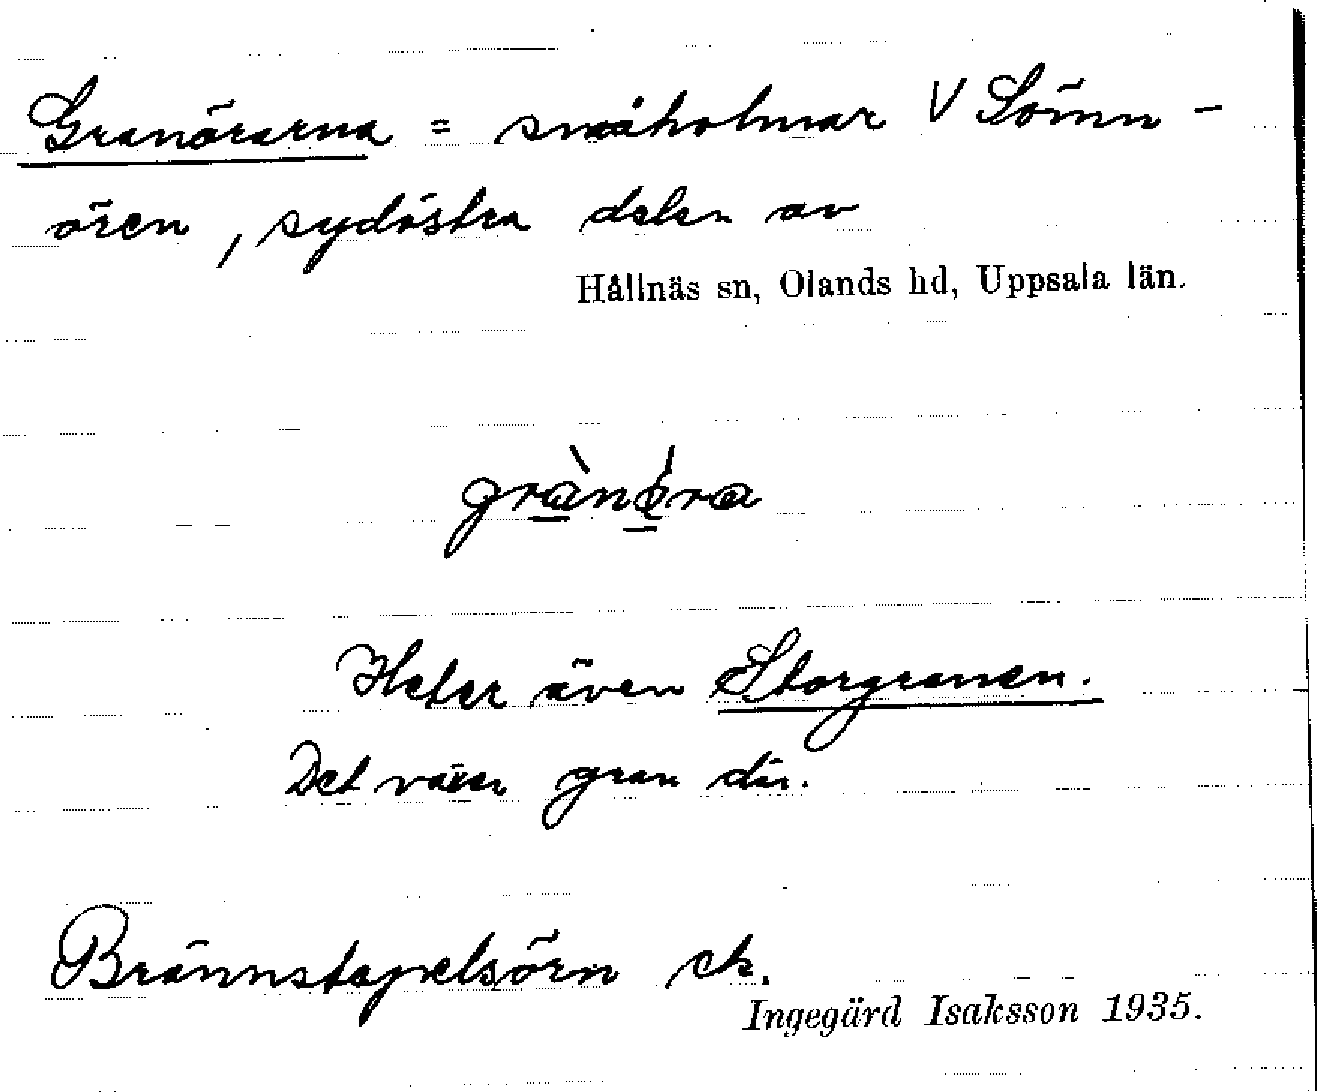 Granörarna = småholmar V Sömn-
ören, sydöstra delen av
Hållnäs sn, Olands hd, Uppsala län.
Heter även Storgranen.
Det växer gran där.
Brännstapelsörn ek.
Ingegärd Isaksson 1935.